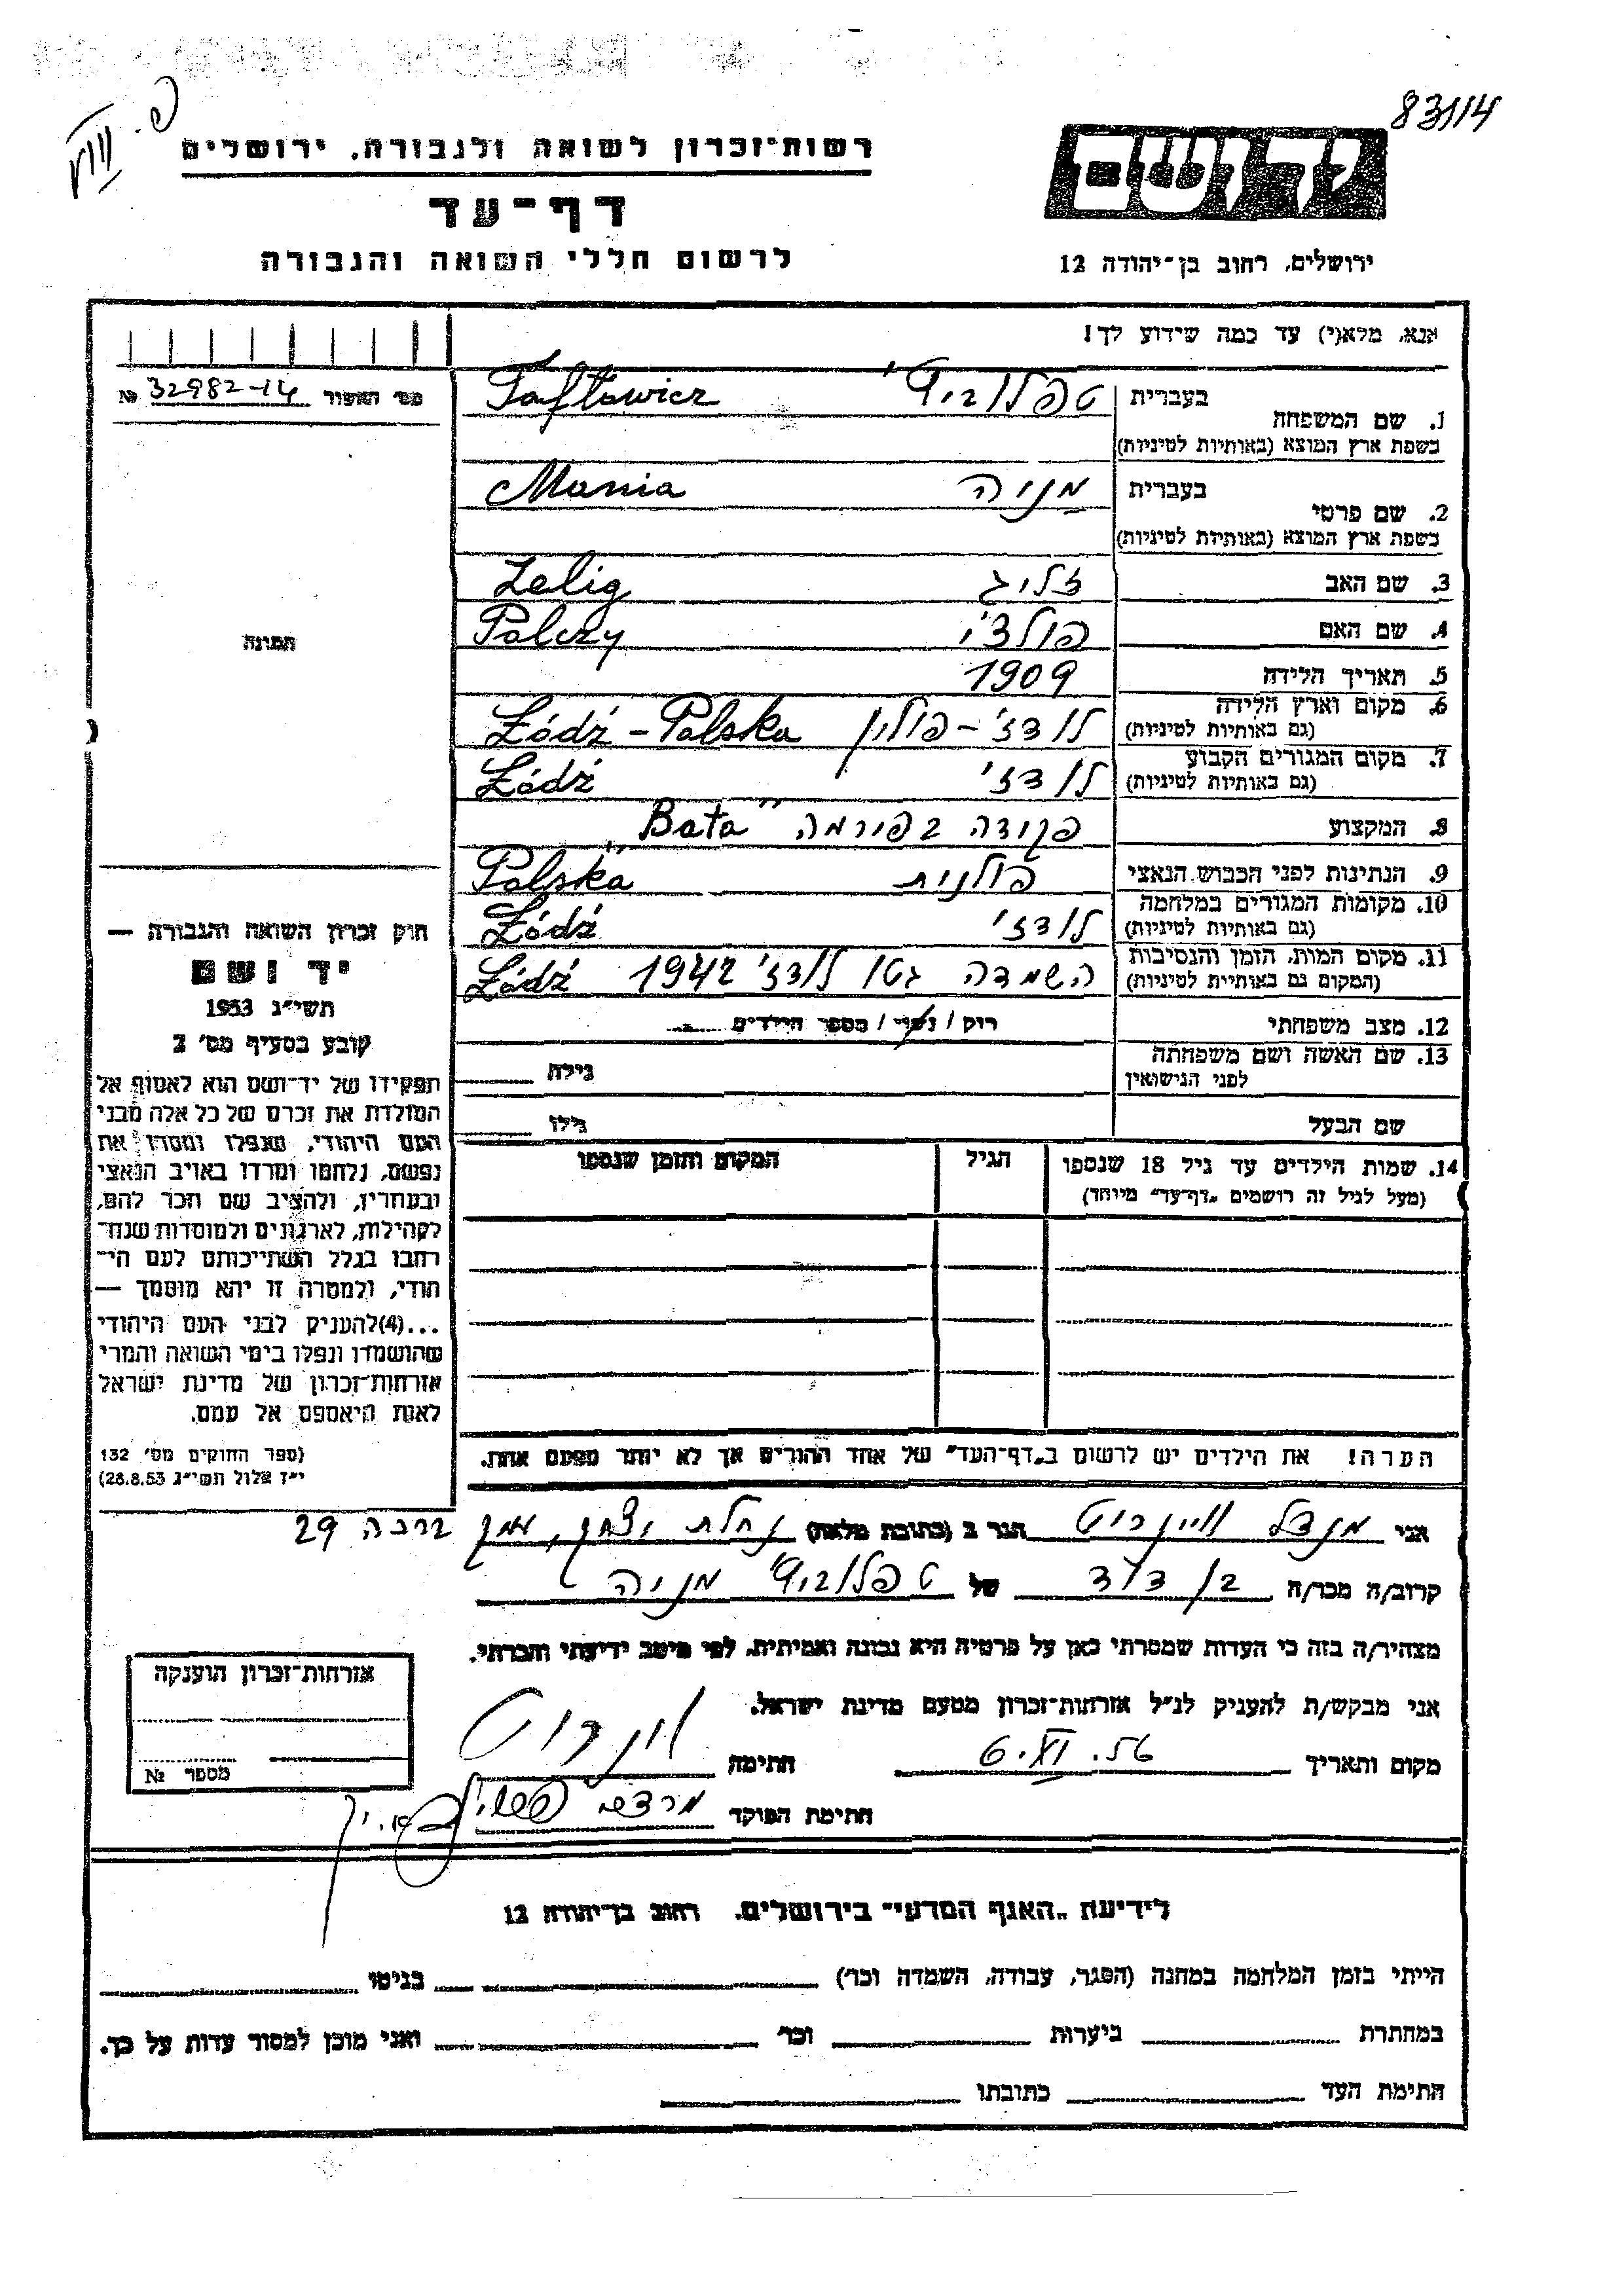 83114
רשות־זכרון לשואה ולגבורה, ירושלים
דף־עד
לרשום חללי השואה והגבורה
יד ושם
ירושלים, רחוב בן־יהודה 12
אנא, מלא(י) עד כמה שידוע לך!
מס' האשור № 32982-14
תמונה
1. שם המשפחה בעברית טפלוביץ' Taftowicz
בשפת ארץ המוצא (באותיות לטיניות)
2. שם פרטי בעברית מניה Mania
בשפת ארץ המוצא (באותיות לטיניות)
3. שם האב זליג Zelig
4. שם האם פולצ'י Polczy
5. תאריך הלידה 1909
6. מקום וארץ הלידה לודז' - פולין Łódź - Polska
(גם באותיות לטיניות)
7. מקום המגורים הקבוע לודז' Łódź
(גם באותיות לטיניות)
8. המקצוע פקידה בפירמה "Bata"
9. הנתינות לפני הכבוש הנאצי פולנית Polska
10. מקומות המגורים במלחמה לודז' Łódź
(גם באותיות לטיניות)
11. מקום המות, הזמן והנסיבות השמדה גטו לודז' 1942 Łódź
(המקום גם באותיות לטיניות)
12. מצב משפחתי רוק / נשוי / מספר הילדים
13. שם האשה ושם משפחתה לפני הנישואין גילה
שם הבעל גילו
14. שמות הילדים עד גיל 18 שנספו הגיל המקום והזמן שנספו
(מעל לגיל זה רושמים „דף־עד" מיוחד)
חוק זכרון השואה והגבורה —
יד ושם
תשי"ג 1953
קובע בסעיף מס' 2
תפקידו של יד־ושם הוא לאסוף אל
המולדת את זכרם של כל אלה מבני
העם היהודי, שנפלו ומסרו את
נפשם, נלחמו ומרדו באויב הנאצי
ובעוזריו, ולהציב שם וזכר להם,
לקהילות, לארגונים ולמוסדות שנח־
רבו בגלל השתייכותם לעם הי־
הודי, ולמטרה זו יהא מוסמך —
...(4)להעניק לבני העם היהודי
שהושמדו ונפלו בימי השואה והמרי
אזרחות־זכרון של מדינת ישראל
לאות היאספם אל עמם.
(ספר החוקים מס' 132
י"ז אלול תשי"ג 28.8.53)
הערה! את הילדים יש לרשום ב„דף־העד" של אחד ההורים אך לא יותר מפעם אחת.
אני מנדל ויינרוט הגר ב (כתובת מלאה) נחלת יצחק, עמק ברכה 29
קרוב/ה מכר/ה בן דוד של טפלוביץ' מניה
מצהיר/ה בזה כי העדות שמסרתי כאן על פרטיה היא נכונה ואמיתית, לפי מיטב ידיעתי והכרתי.
אני מבקש/ת להעניק לנ"ל אזרחות־זכרון מטעם מדינת ישראל.
מקום ותאריך חתימה ויינרוט
חתימת הפוקד מרדכי
אזרחות־זכרון הוענקה
מספר №
לידיעת „האגף המדעי" בירושלים, רחוב בן־יהודה 12
הייתי בזמן המלחמה במחנה (הסגר, עבודה, השמדה וכר') בגיטו
במחתרת ביערות וכר' ואני מוכן למסור עדות על כך.
חתימת העד כתובתו